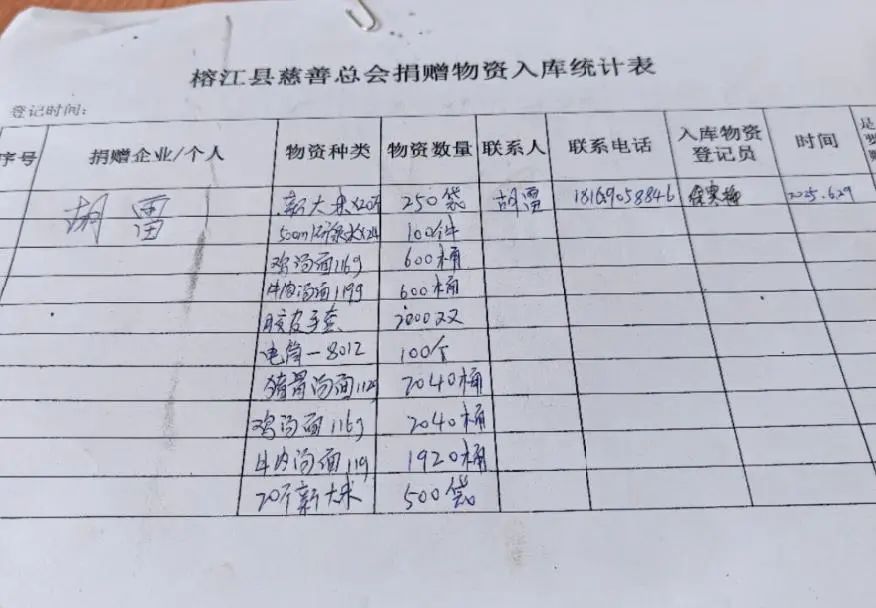 榕江县慈善总会捐赠物资入库统计表
登记时间:
序号 捐赠企业/个人 物资种类 物资数量 联系人 联系电话 入库物资登记员 时间
胡雷 新大米 250袋 胡雷 18169058846 2025.6.29
500ml 100件
鸡汤面116g 600桶
牛肉汤面119g 600桶
胶皮手套 2000双
电筒-8012 100个
猪骨汤面112g 2040桶
鸡汤面116g 2040桶
牛肉汤面119 1920桶
20斤新大米 500袋